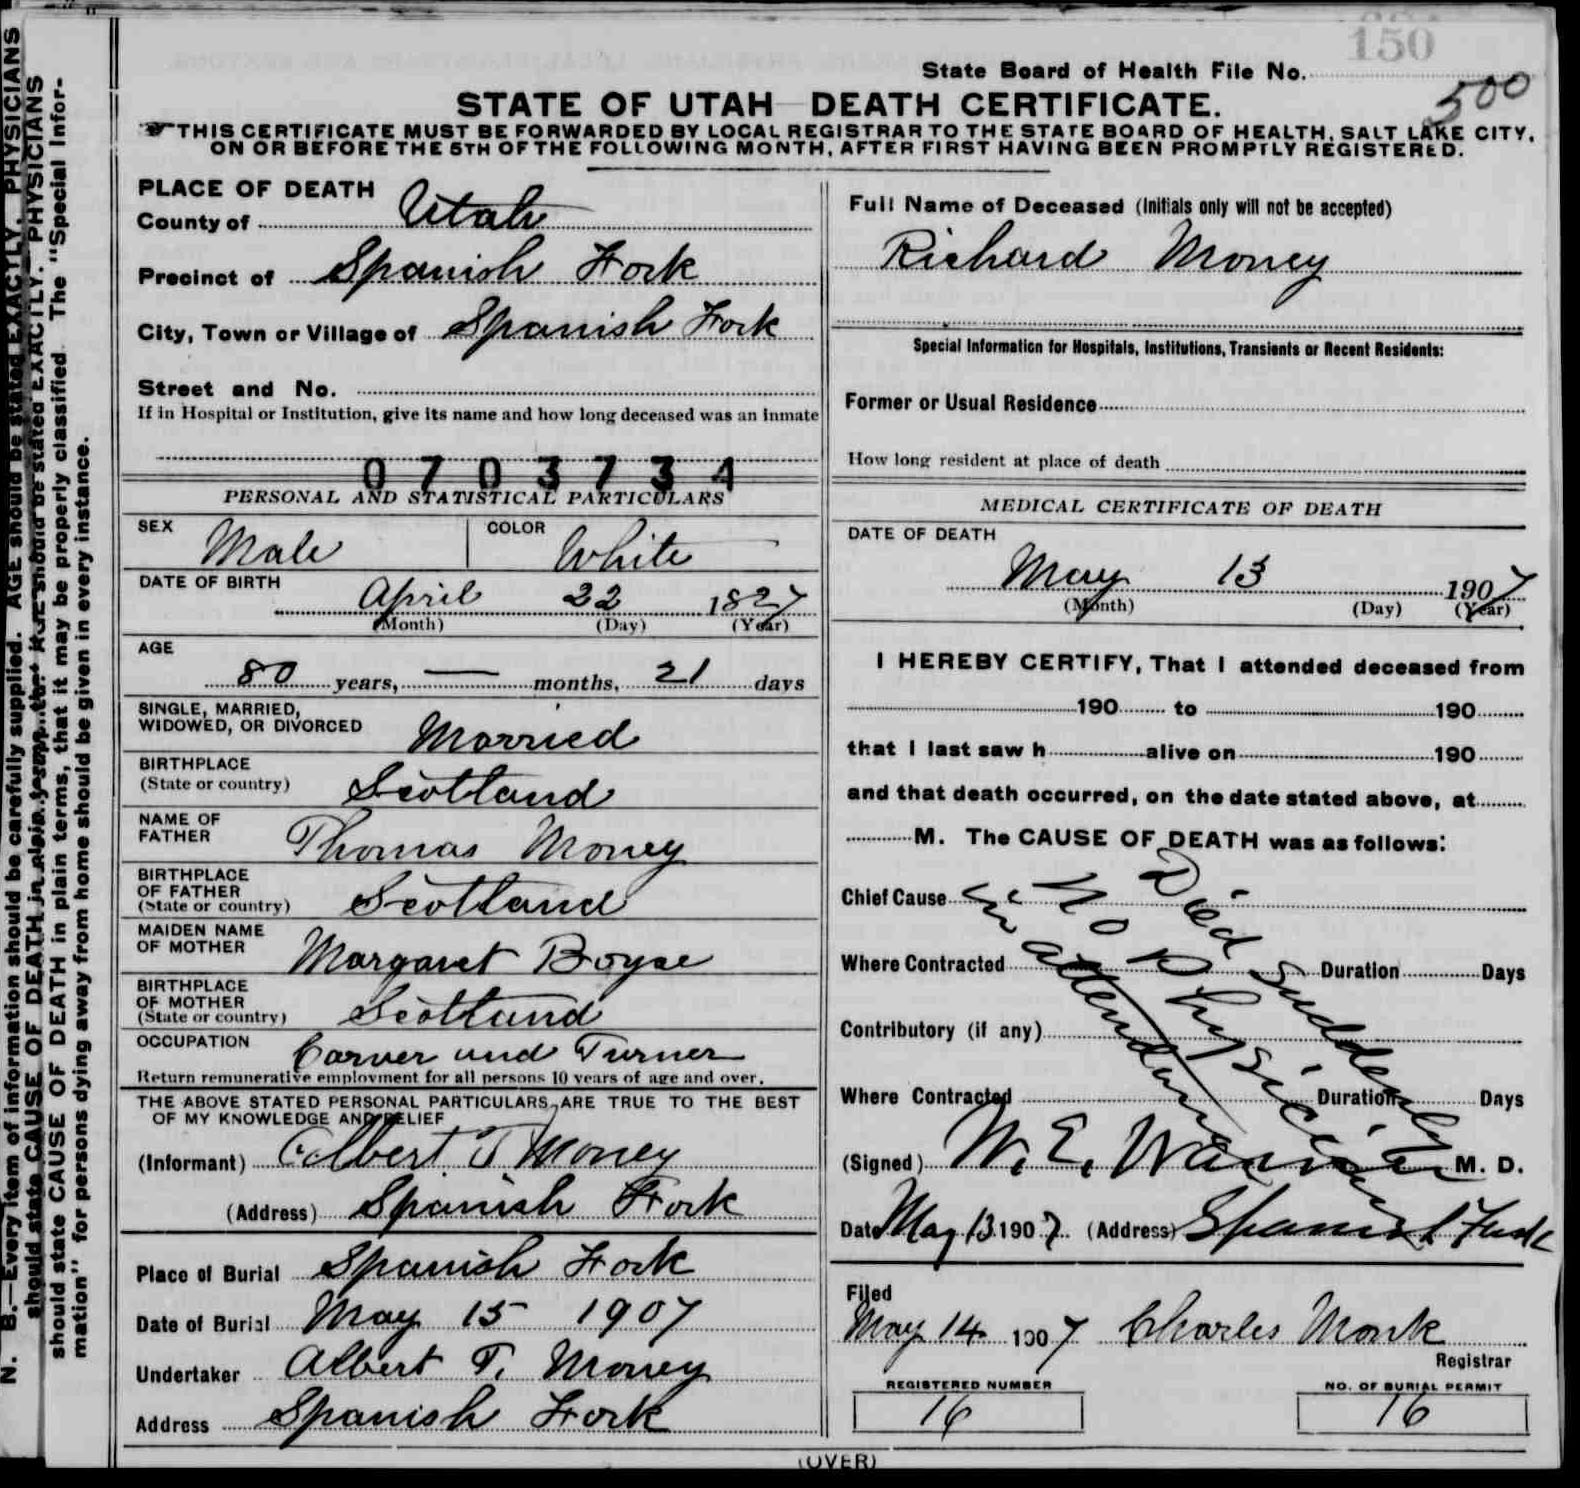 150
State Board of Health File No. 500
STATE OF UTAH DEATH CERTIFICATE.
THIS CERTIFICATE MUST BE FORWARDED BY LOCAL REGISTRAR TO THE STATE BOARD OF HEALTH, SALT LAKE CITY,
ON OR BEFORE THE 5TH OF THE FOLLOWING MONTH, AFTER FIRST HAVING BEEN PROMPTLY REGISTERED.
PLACE OF DEATH
County of Utah
Precinct of Spanish Fork
City, Town or Village of Spanish Fork
Street and No.
If in Hospital or Institution, give its name and how long deceased was an inmate
0703734
PERSONAL AND STATISTICAL PARTICULARS
SEX Male COLOR White
DATE OF BIRTH April 22 1827
(Month) (Day) (Year)
AGE
80 years, — months, 21 days
SINGLE, MARRIED,
WIDOWED, OR DIVORCED Married
BIRTHPLACE
(State or country) Scotland
NAME OF
FATHER Thomas Money
BIRTHPLACE
OF FATHER
(State or country) Scotland
MAIDEN NAME
OF MOTHER Margaret Boyse
BIRTHPLACE
OF MOTHER
(State or country) Scotland
OCCUPATION Carver and Turner
Return remunerative employment for all persons 10 years of age and over.
THE ABOVE STATED PERSONAL PARTICULARS ARE TRUE TO THE BEST
OF MY KNOWLEDGE AND BELIEF
(Informant) Albert T Money
(Address) Spanish Fork
Place of Burial Spanish Fork
Date of Burial May 15 1907
Undertaker Albert T. Money
Address Spanish Fork
Full Name of Deceased (Initials only will not be accepted)
Richard Money
Special Information for Hospitals, Institutions, Transients or Recent Residents:
Former or Usual Residence
How long resident at place of death
MEDICAL CERTIFICATE OF DEATH
DATE OF DEATH
May 13 1907
(Month) (Day) (Year)
I HEREBY CERTIFY, That I attended deceased from
190 to 190
that I last saw h alive on 190
and that death occurred, on the date stated above, at
M. The CAUSE OF DEATH was as follows:
Died suddenly
no physician
in attendance
Chief Cause
Where Contracted Duration Days
Contributory (if any)
Where Contracted Duration Days
(Signed) W. E. Warner M. D.
Date May 13 1907 (Address) Spanish Fork
Filed
May 14 1907 Charles Monk
Registrar
REGISTERED NUMBER
16
NO. OF BURIAL PERMIT
16
(OVER)
N. B.—Every item of information should be carefully supplied. AGE should be stated EXACTLY. PHYSICIANS
should state CAUSE OF DEATH in plain terms, that it may be properly classified. The "Special Infor-
mation" for persons dying away from home should be given in every instance.